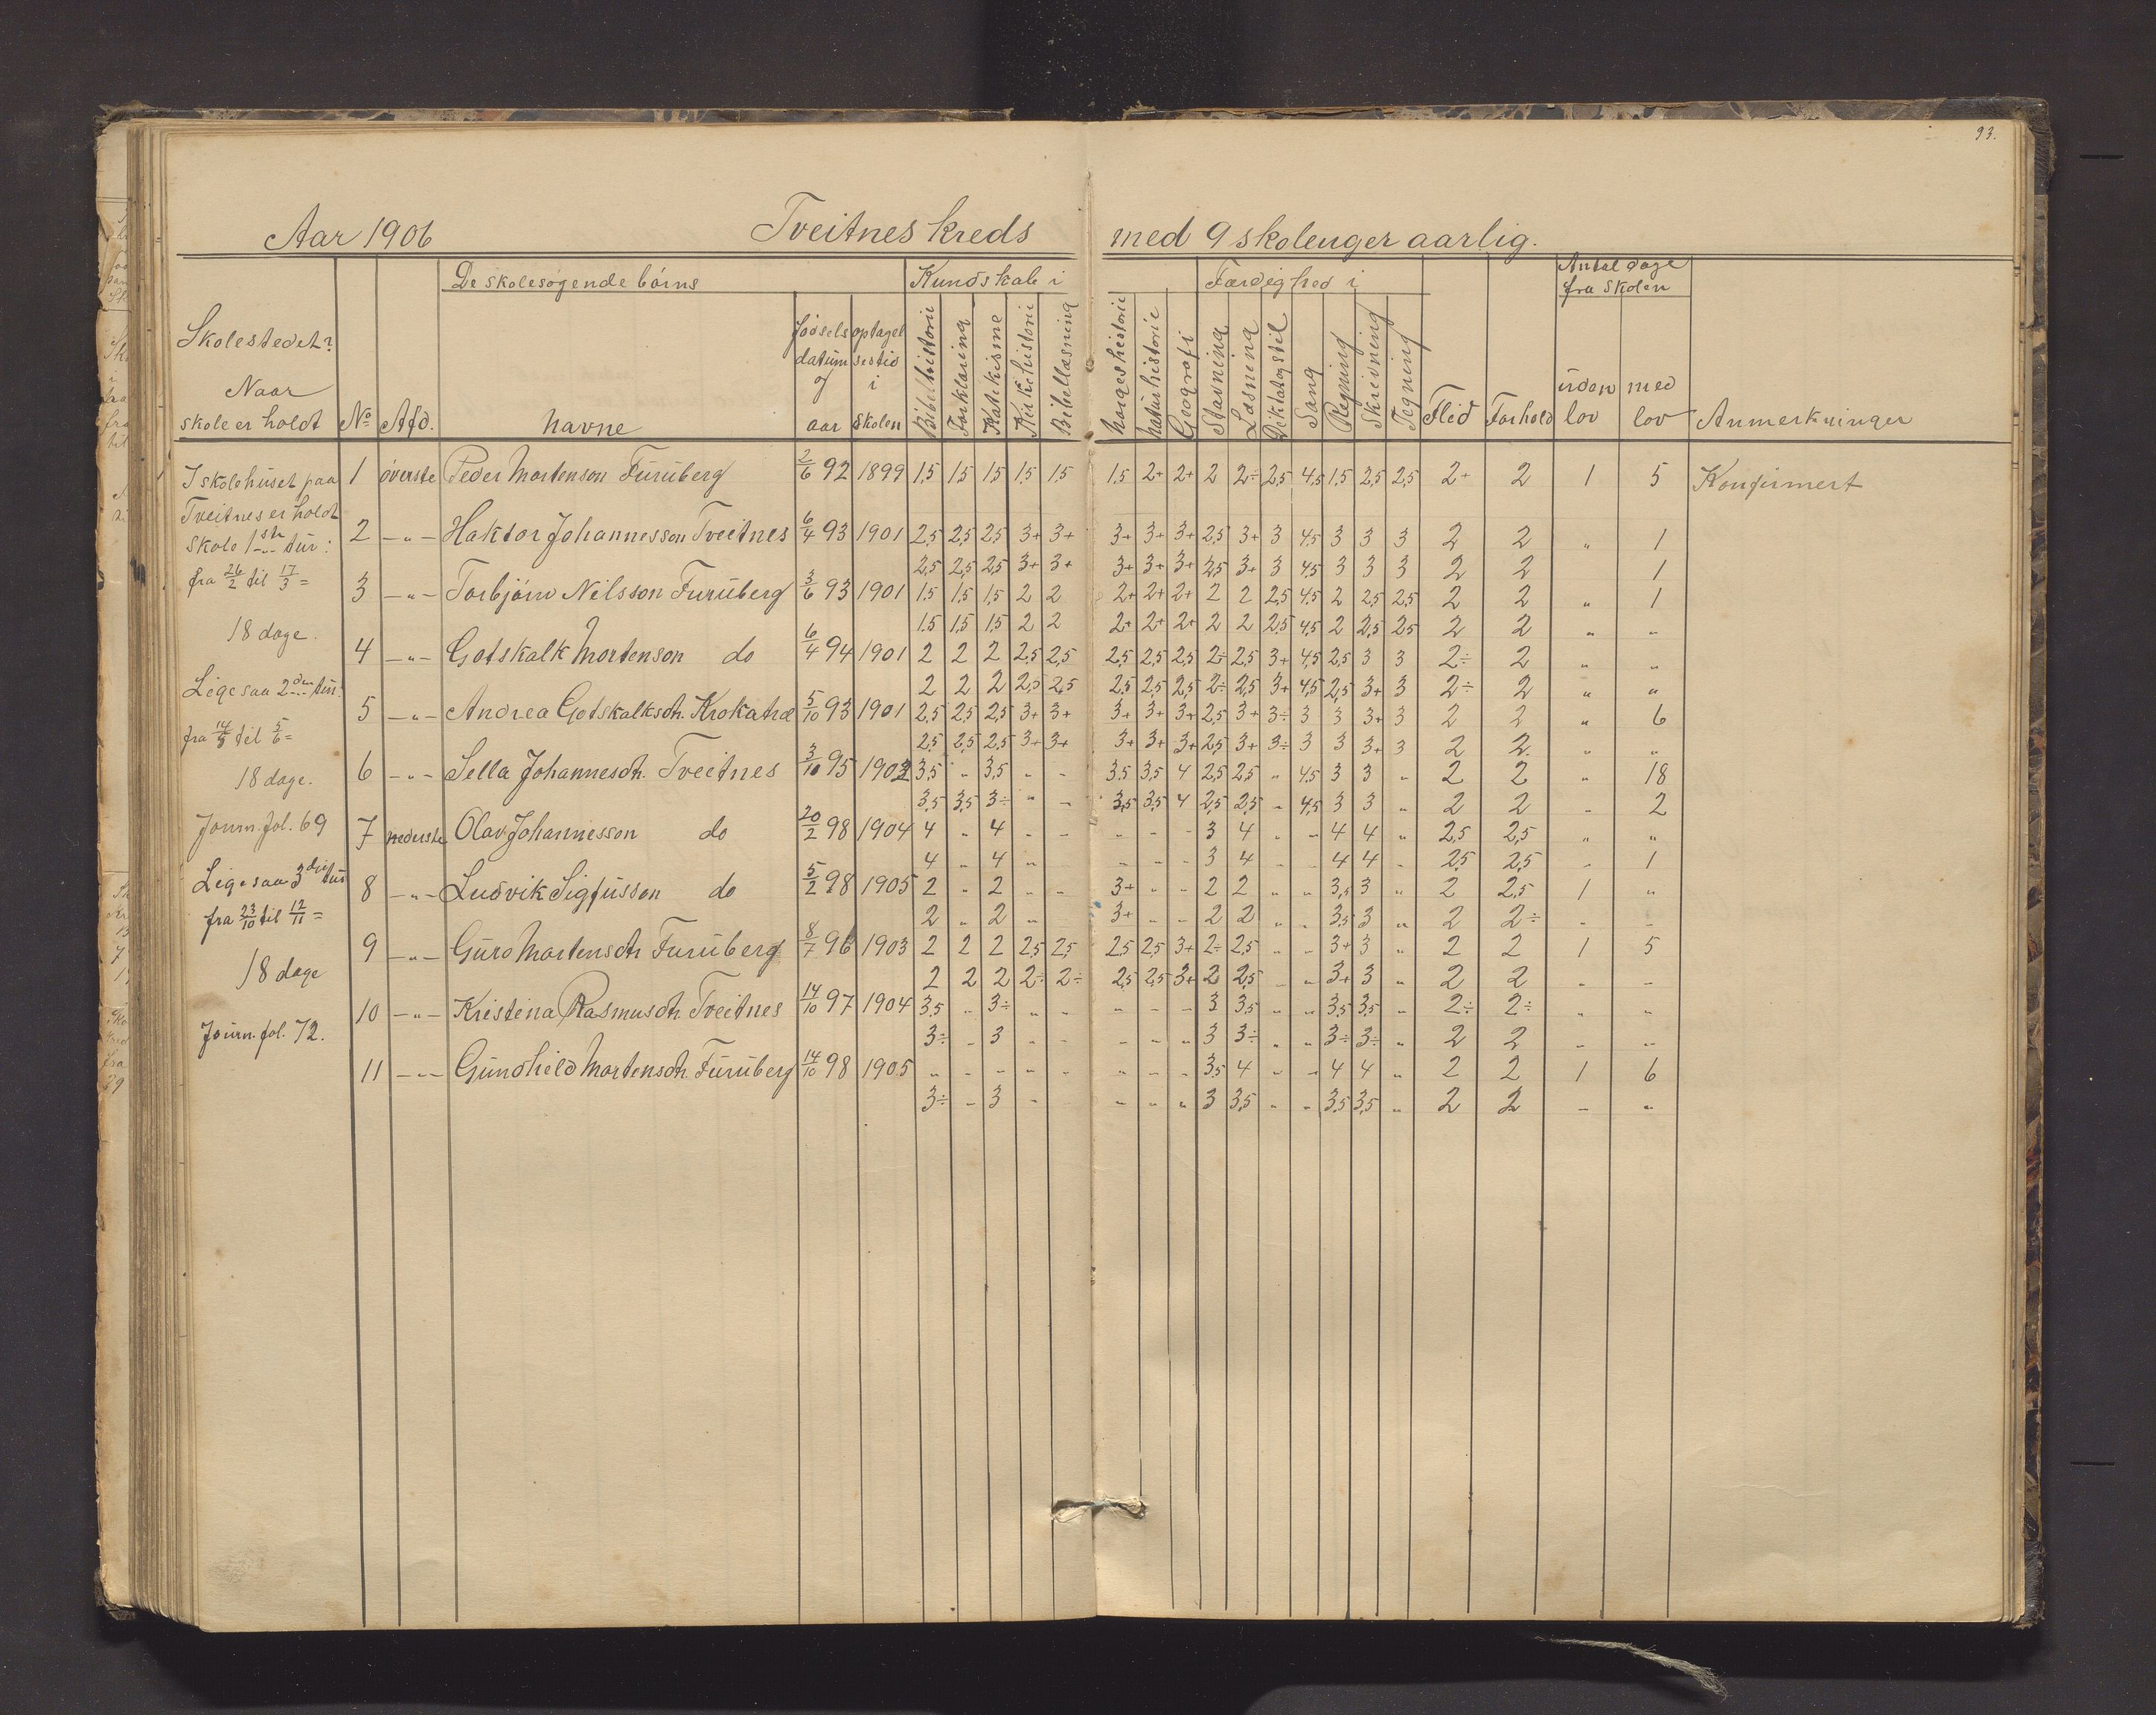 93.
Aar 1906 Tveitnes kreds med 9 skoleuger aarlig.
De skolesøgende børns Kundskab i Færdighed i Antal dage fra skolen
Skolestedet? Naar skole er holdt No Afd. Navne fødsels datum og aar optagelsestid i skolen Bibelhistorie Forklaring Katekisme Kirkehistorie Bibellæsning Norgeshistorie Naturhistorie Geografi Stavning Læsning Diktatogstil Sang Regning Skrivning Tegning Flid Forhold uden lov med lov Anmerkninger
I skolehuset paa
Tveitnes er holdt
skole 1ste tur:
fra 26/2 til 17/3 =
18 dage.
Ligesaa 2den tur:
fra 14/5 til 5/6 =
18 dage.
Journ. fol. 69
Ligesaa 3die tur
fra 23/10 til 12/11 =
18 dage
Journ. fol. 72.
1 øverste Peder Mortenson Furuberg 2/6 92 1899 1,5 1,5 1,5 1,5 1,5 1,5 2+ 2+ 2 2÷ 2,5 4,5 1,5 2,5 2,5 2+ 2 1 5 Konfirmert
2 -"- Haktor Johannesson Tveitnes 6/4 93 1901 2,5 2,5 2,5 3+ 3+ 3+ 3+ 3+ 2,5 3+ 3 4,5 3 3 3 2 2 " 1
2,5 2,5 2,5 3+ 3+ 3+ 3+ 3+ 2,5 3+ 3 4,5 3 3 3 2 2 1
3 -"- Torbjørn Nilsson Furuberg 3/6 93 1901 1,5 1,5 1,5 2 2 2+ 2+ 2+ 2 2 2,5 4,5 2 2,5 2,5 2 2 " 1
1,5 1,5 1,5 2 2 2+ 2+ 2+ 2 2 2,5 4,5 2 2,5 2,5 2 2 " "
4 -"- Gotskalk Mortenson do 6/4 94 1901 2 2 2 2,5 2,5 2,5 2,5 2,5 2÷ 2,5 3+ 4,5 2,5 3 3 2÷ 2 " "
2 2 2 2,5 2,5 2,5 2,5 2,5 2÷ 2,5 3+ 4,5 2,5 3+ 3 2÷ 2 " "
5 -"- Andrea Gotskalksdtr. Krokatræ 5/10 93 1901 2,5 2,5 2,5 3+ 3+ 3+ 3+ 3+ 2,5 3+ 3÷ 3 3 3+ 3 2 2 " 6
2,5 2,5 2,5 3+ 3+ 3+ 3+ 3+ 2,5 3+ 3÷ 3 3 3+ 3 2 2 " "
6 -"- Sella Johannesdtr. Tveitnes 3/10 95 1902 3,5 " 3,5 " " 3,5 3,5 4 2,5 2,5 " 4,5 3 3 " 2 2 " 18
3,5 3,5 3÷ " " 3,5 3,5 4 2,5 2,5 " 4,5 3 3 " 2 2 " 2
7 nederste Olav Johannesson do 20/2 98 1904 4 " 4 " " " " " 3 4 " " 4 4 " 2,5 2,5 " "
4 " 4 " " " " 3 4 " " 4 4 " 2,5 2,5 " 1
8 -"- Ludvik Sigfusson do 5/2 98 1905 2 " 2 " " 3+ " " 2 2 " " 3,5 3 " 2 2,5 1 "
2 " 2 " 3+ " " 2 2 " " 3,5 3 " 2 2÷ " "
9 -"- Guro Mortensdtr Furuberg 8/7 96 1903 2 2 2 2,5 2,5 2,5 2,5 3+ 2÷ 2,5 " " 3+ 3 " 2 2 1 5
2 2 2 2÷ 2÷ 2,5 2,5 3+ 2 2,5 " " 3+ 3 " 2 2 " "
10 -"- Kristina Rasmusdtr. Tveitnes 14/10 97 1904 3,5 " 3÷ " " " " " 3 3,5 " " 3,5 3,5 " 2÷ 2÷ " "
3÷ " 3 " " " " " 3 3÷ " " 3÷ 3÷ " 2 2 " "
11 -"- Gundhild Mortensdtr. Furuberg 14/10 98 1905 " " " " " " " " 3,5 4 " " 4 4 " 2 2 1 6
3÷ " 3 " " " " 3 3,5 " " 3,5 3,5 " 2 2 " "